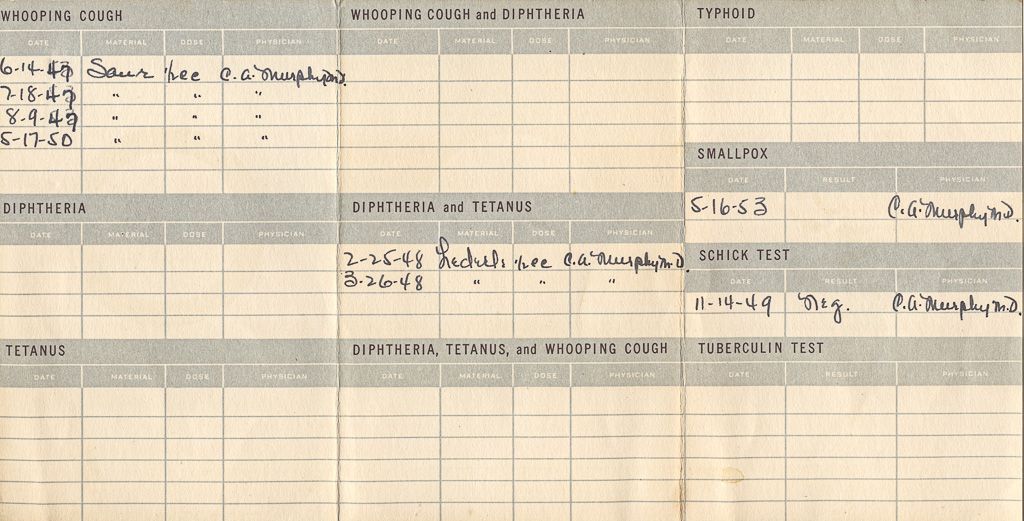 WHOOPING COUGH
DATE MATERIAL DOSE PHYSICIAN
6-14-47 Sauer 1cc C.A. Murphy M.D.
7-18-47 " " "
8-9-47 " " "
5-17-50 " " "
WHOOPING COUGH and DIPHTHERIA
DATE MATERIAL DOSE PHYSICIAN
TYPHOID
DATE MATERIAL DOSE PHYSICIAN
SMALLPOX
DATE RESULT PHYSICIAN
5-16-53 C.A. Murphy M.D.
DIPHTHERIA
DATE MATERIAL DOSE PHYSICIAN
DIPHTHERIA and TETANUS
DATE MATERIAL DOSE PHYSICIAN
2-25-48 1cc C.A. Murphy M.D.
3-26-48 " " "
SCHICK TEST
DATE RESULT PHYSICIAN
11-14-49 Neg. C.A. Murphy M.D.
TETANUS
DATE MATERIAL DOSE PHYSICIAN
DIPHTHERIA, TETANUS, and WHOOPING COUGH
DATE MATERIAL DOSE PHYSICIAN
TUBERCULIN TEST
DATE RESULT PHYSICIAN